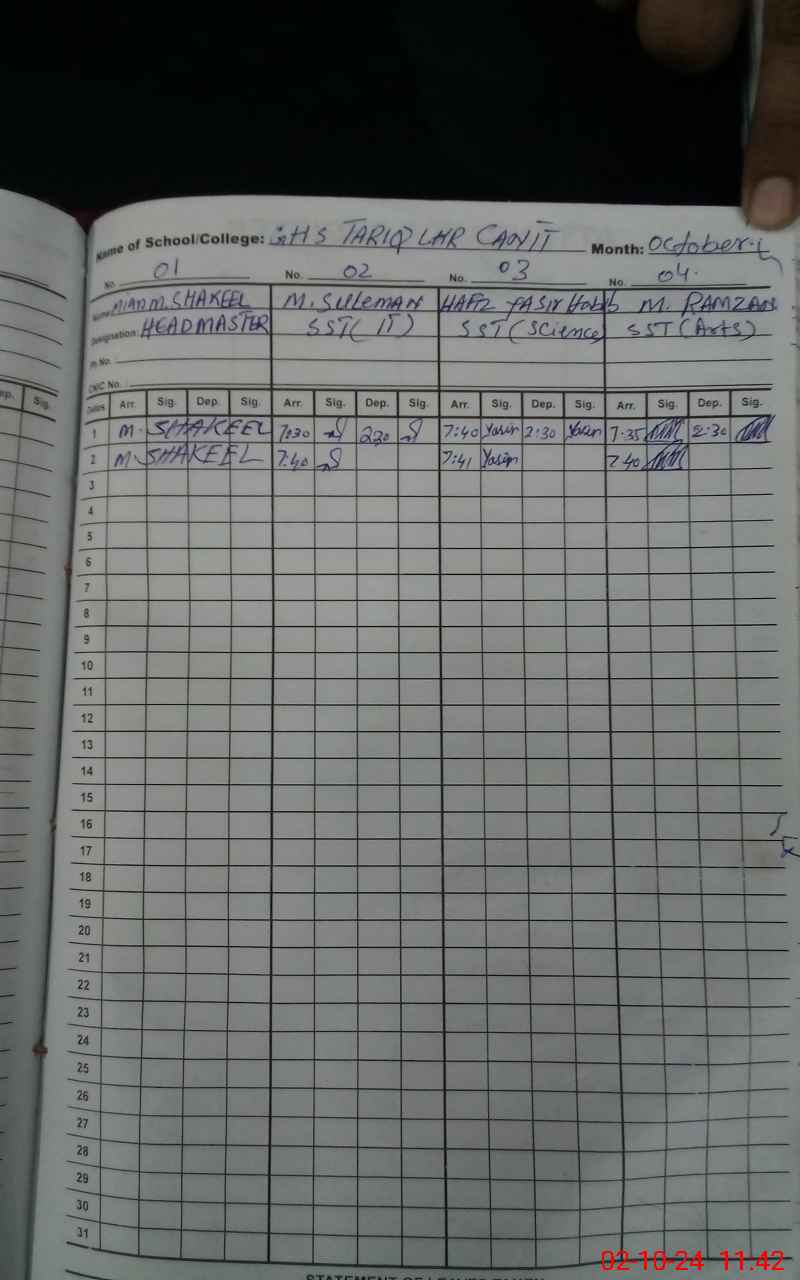 Name of School/College: GHS TARIQ LHR CANTT Month: October
No. 01 No. 02 No. 03 No. 04.
Name: MIAN M. SHAKEEL M. SULEMAN HAFIZ YASIR Habib M. RAMZAN
Designation: HEADMASTER SST( IT) SST (Science) SST (Arts)
P. No.
CNIC No.
Dates Arr. Sig. Dep. Sig. Arr. Sig. Dep. Sig. Arr. Sig. Dep. Sig. Arr. Sig. Dep. Sig.
1 M. SHAKEEL 7:30 2:30 7:40 Yasir 2:30 Yasir 7:35 2:30
2 M. SHAKEEL 7:40 7:41 Yasir 7:40
3
4
5
6
7
8
9
10
11
12
13
14
15
16
17
18
19
20
21
22
23
24
25
26
27
28
29
30
31
STATEMENT OF LEAVES TAKEN
ep. Sig.
02-10-24 11:42